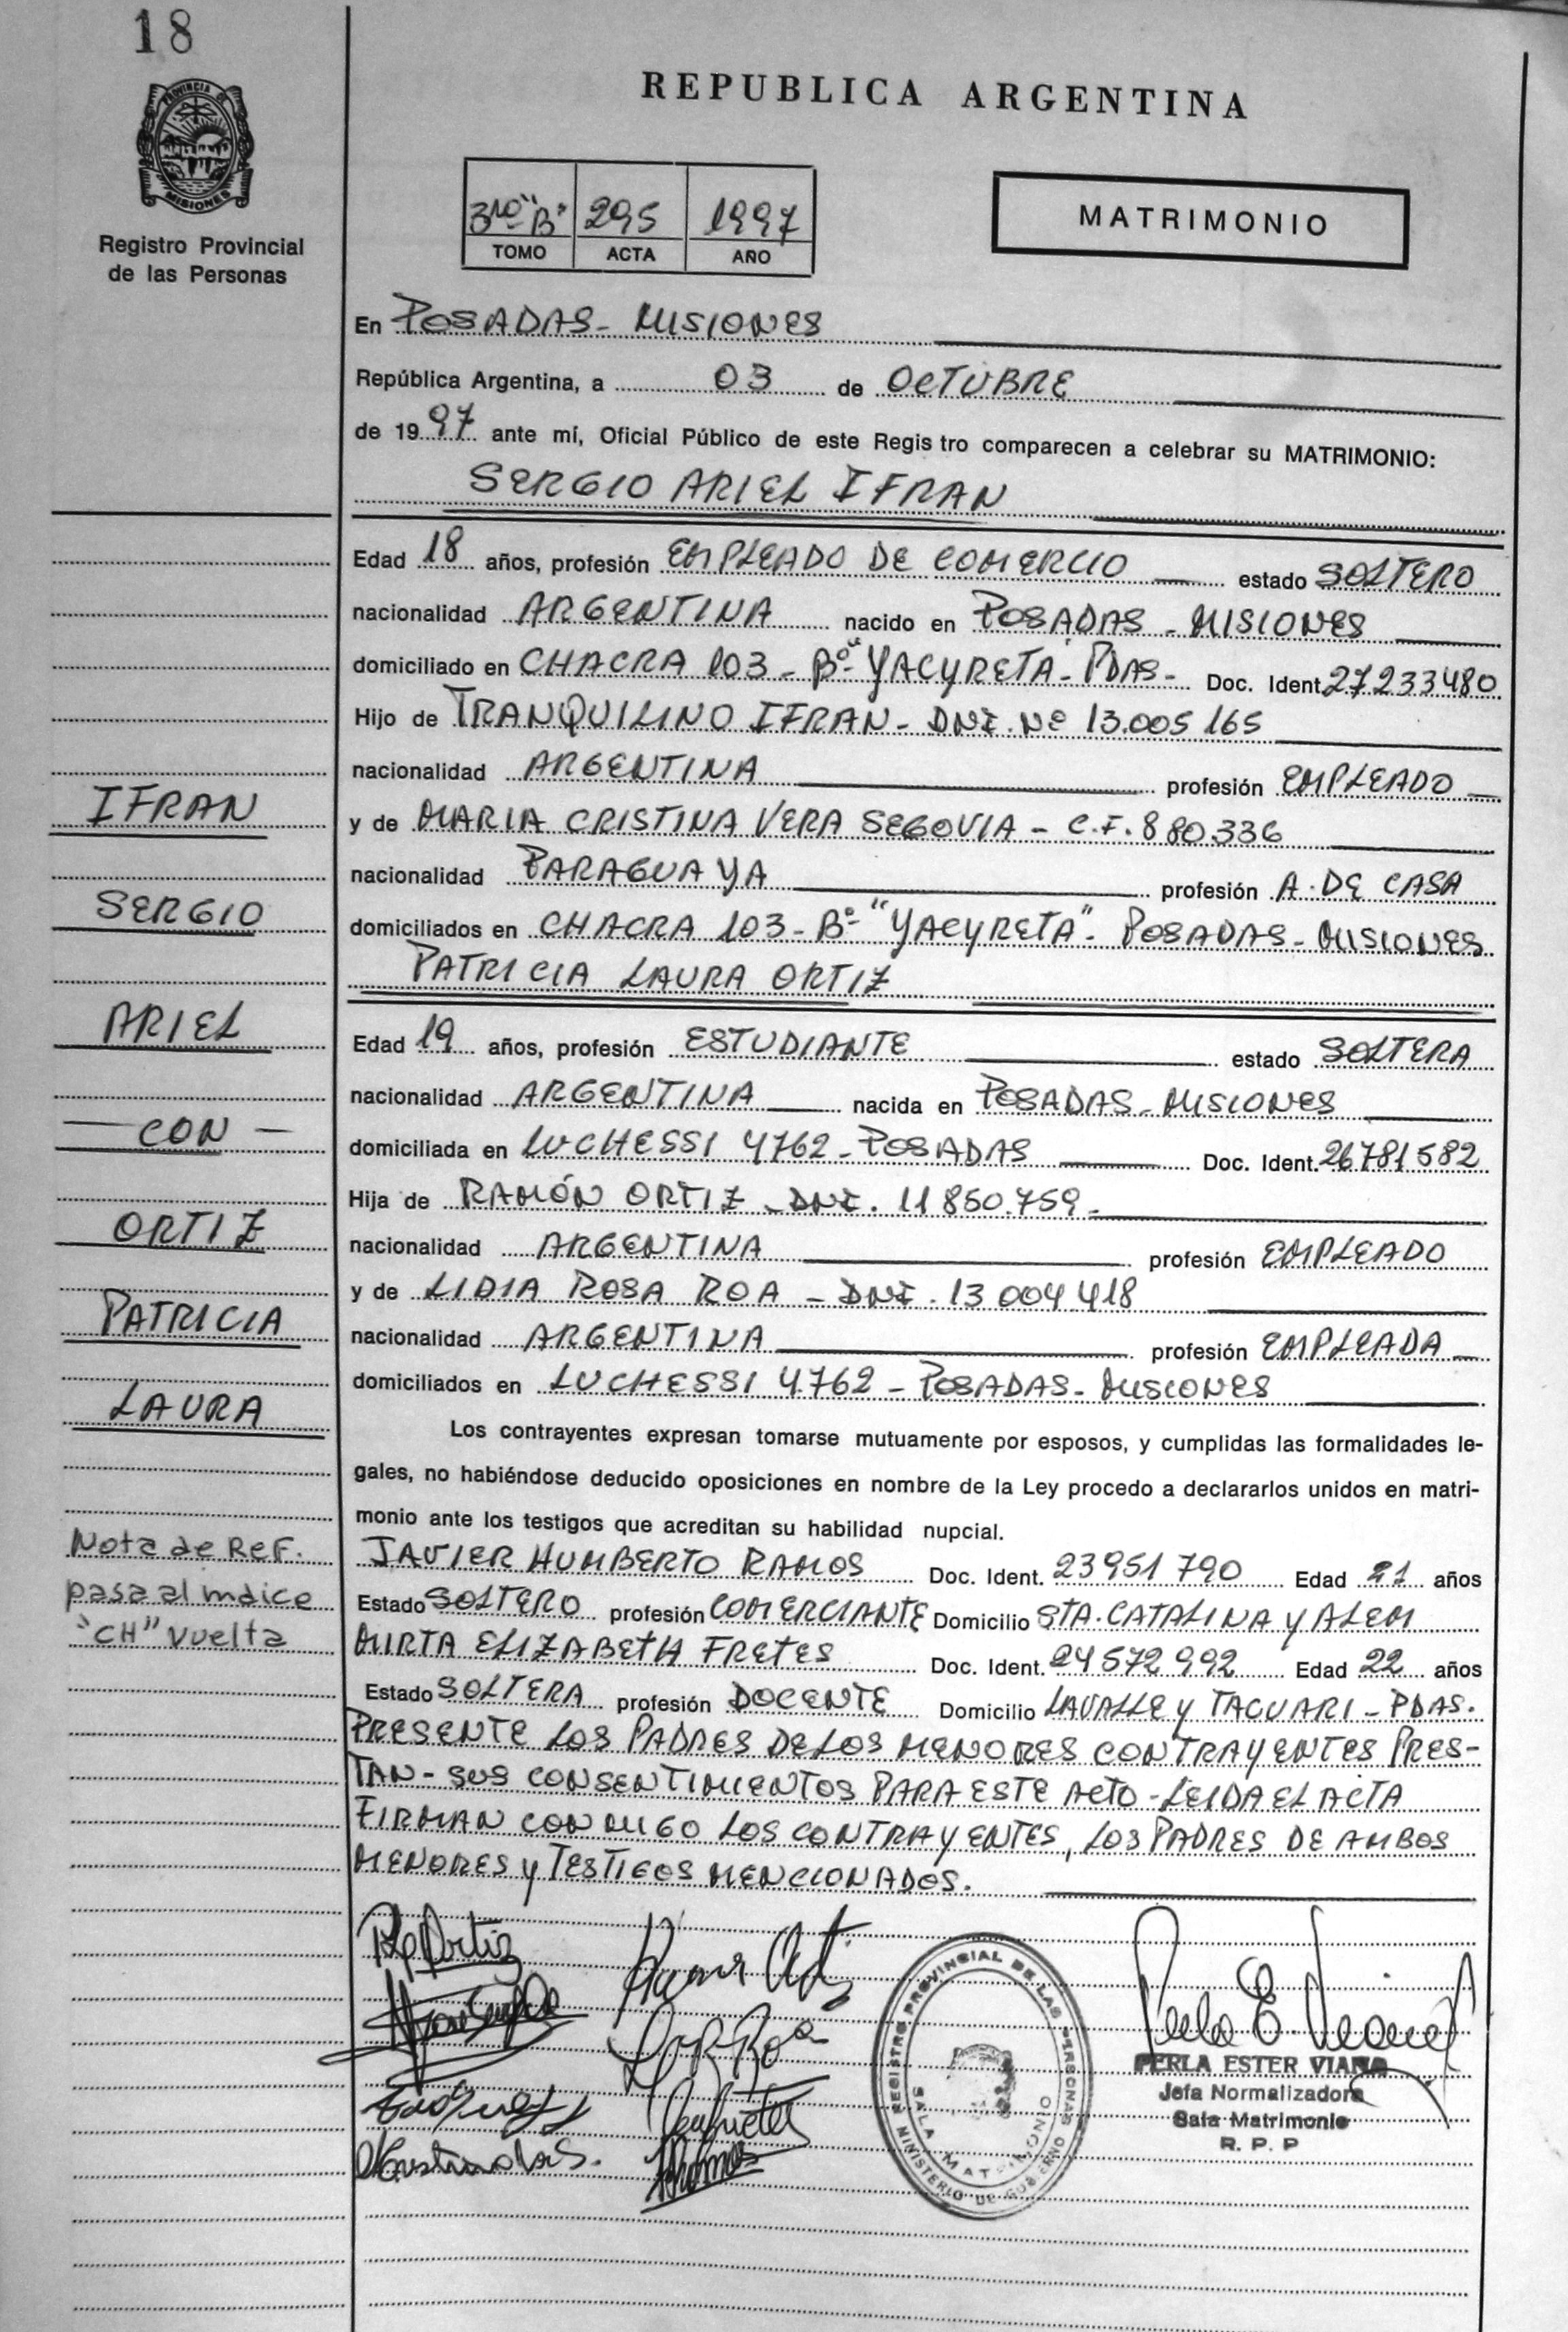 18
PROVINCIA DE
MISIONES
Registro Provincial
de las Personas
REPUBLICA ARGENTINA
3ro "B" 295 1997
TOMO ACTA AÑO
MATRIMONIO
En POSADAS - MISIONES
República Argentina, a 03 de OCTUBRE
de 1997 ante mí, Oficial Público de este Regis tro comparecen a celebrar su MATRIMONIO:
SERGIO ARIEL IFRAN
Edad 18 años, profesión EMPLEADO DE COMERCIO estado SOLTERO
nacionalidad ARGENTINA nacido en POSADAS - MISIONES
domiciliado en CHACRA 103 - Bº "YACYRETA" - PDAS - Doc. Ident. 27233480
Hijo de TRANQUILINO IFRAN - DNI. Nº 13.005 165
nacionalidad ARGENTINA profesión EMPLEADO
y de MARIA CRISTINA VERA SEGOVIA - C.F. 880.336
nacionalidad PARAGUAYA profesión A. DE CASA
domiciliados en CHACRA 103 - Bº "YACYRETA" - POSADAS - MISIONES
PATRICIA LAURA ORTIZ
Edad 19 años, profesión ESTUDIANTE estado SOLTERA
nacionalidad ARGENTINA nacida en POSADAS - MISIONES
domiciliada en LUCHESSI 4762 - POSADAS Doc. Ident. 26781582
Hija de RAMÓN ORTIZ - DNI. 11850.759 -
nacionalidad ARGENTINA profesión EMPLEADO
y de LIDIA ROSA ROA - DNI. 13 004 418
nacionalidad ARGENTINA profesión EMPLEADA
domiciliados en LUCHESSI 4762 - POSADAS - MISIONES
Los contrayentes expresan tomarse mutuamente por esposos, y cumplidas las formalidades le-
gales, no habiéndose deducido oposiciones en nombre de la Ley procedo a declararlos unidos en matri-
monio ante los testigos que acreditan su habilidad nupcial.
JAVIER HUMBERTO RAMOS Doc. Ident. 23951790 Edad 21 años
Estado SOLTERO profesión COMERCIANTE Domicilio STA. CATALINA Y ALEM
MIRTA ELIZABETH FRETES Doc. Ident. 24572992 Edad 22 años
Estado SOLTERA profesión DOCENTE Domicilio LAVALLE y TACUARI - PDAS.
PRESENTE LOS PADRES DE LOS MENORES CONTRAYENTES PRES-
TAN - SUS CONSENTIMIENTOS PARA ESTE ACTO - LEIDA EL ACTA
FIRMAN CONMIGO LOS CONTRAYENTES, LOS PADRES DE AMBOS
MENORES y TESTIGOS MENCIONADOS.
IFRAN
SERGIO
ARIEL
- CON -
ORTIZ
PATRICIA
LAURA
Nota de REF.
pasa al indice
"CH" vuelta
REGISTRO PROVINCIAL DE LAS PERSONAS
SALA MATRIMONIO
MINISTERIO DE GOBIERNO
PERLA ESTER VIANA
Jefa Normalizadora
Sala Matrimonio
R. P. P